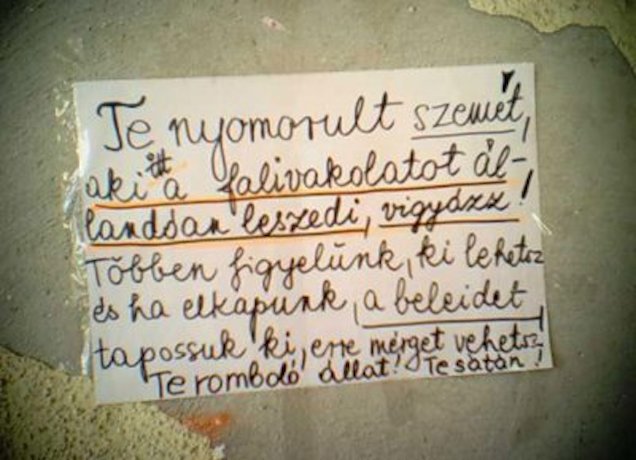 Te nyomorult szemét,
aki itt a falivakolatot ál-
landóan leszedi, vigyázz!
Többen figyelünk, ki lehetsz
és ha elkapunk, a beleidet
tapossuk ki, erre mérget vehetsz
Te romboló állat! Te sátán!